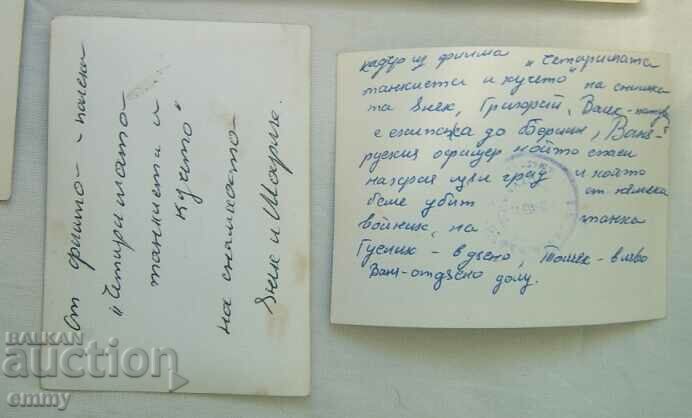 От филма - полски
"Четиримата
танкиста и
кучето"
на снимката
Янек и Шарик.
кадър из филма "Четиримата
танкиста и кучето" на снимка
та Янек, Григорий,
е екипажа до Берлин,
руския офицер който спаси
цял град и който
беше убит от немска
войник, на танка
Густлик - вдясно, Томек - вляво
Ваня-отдясно долу.
BALKAN
auction
emmy